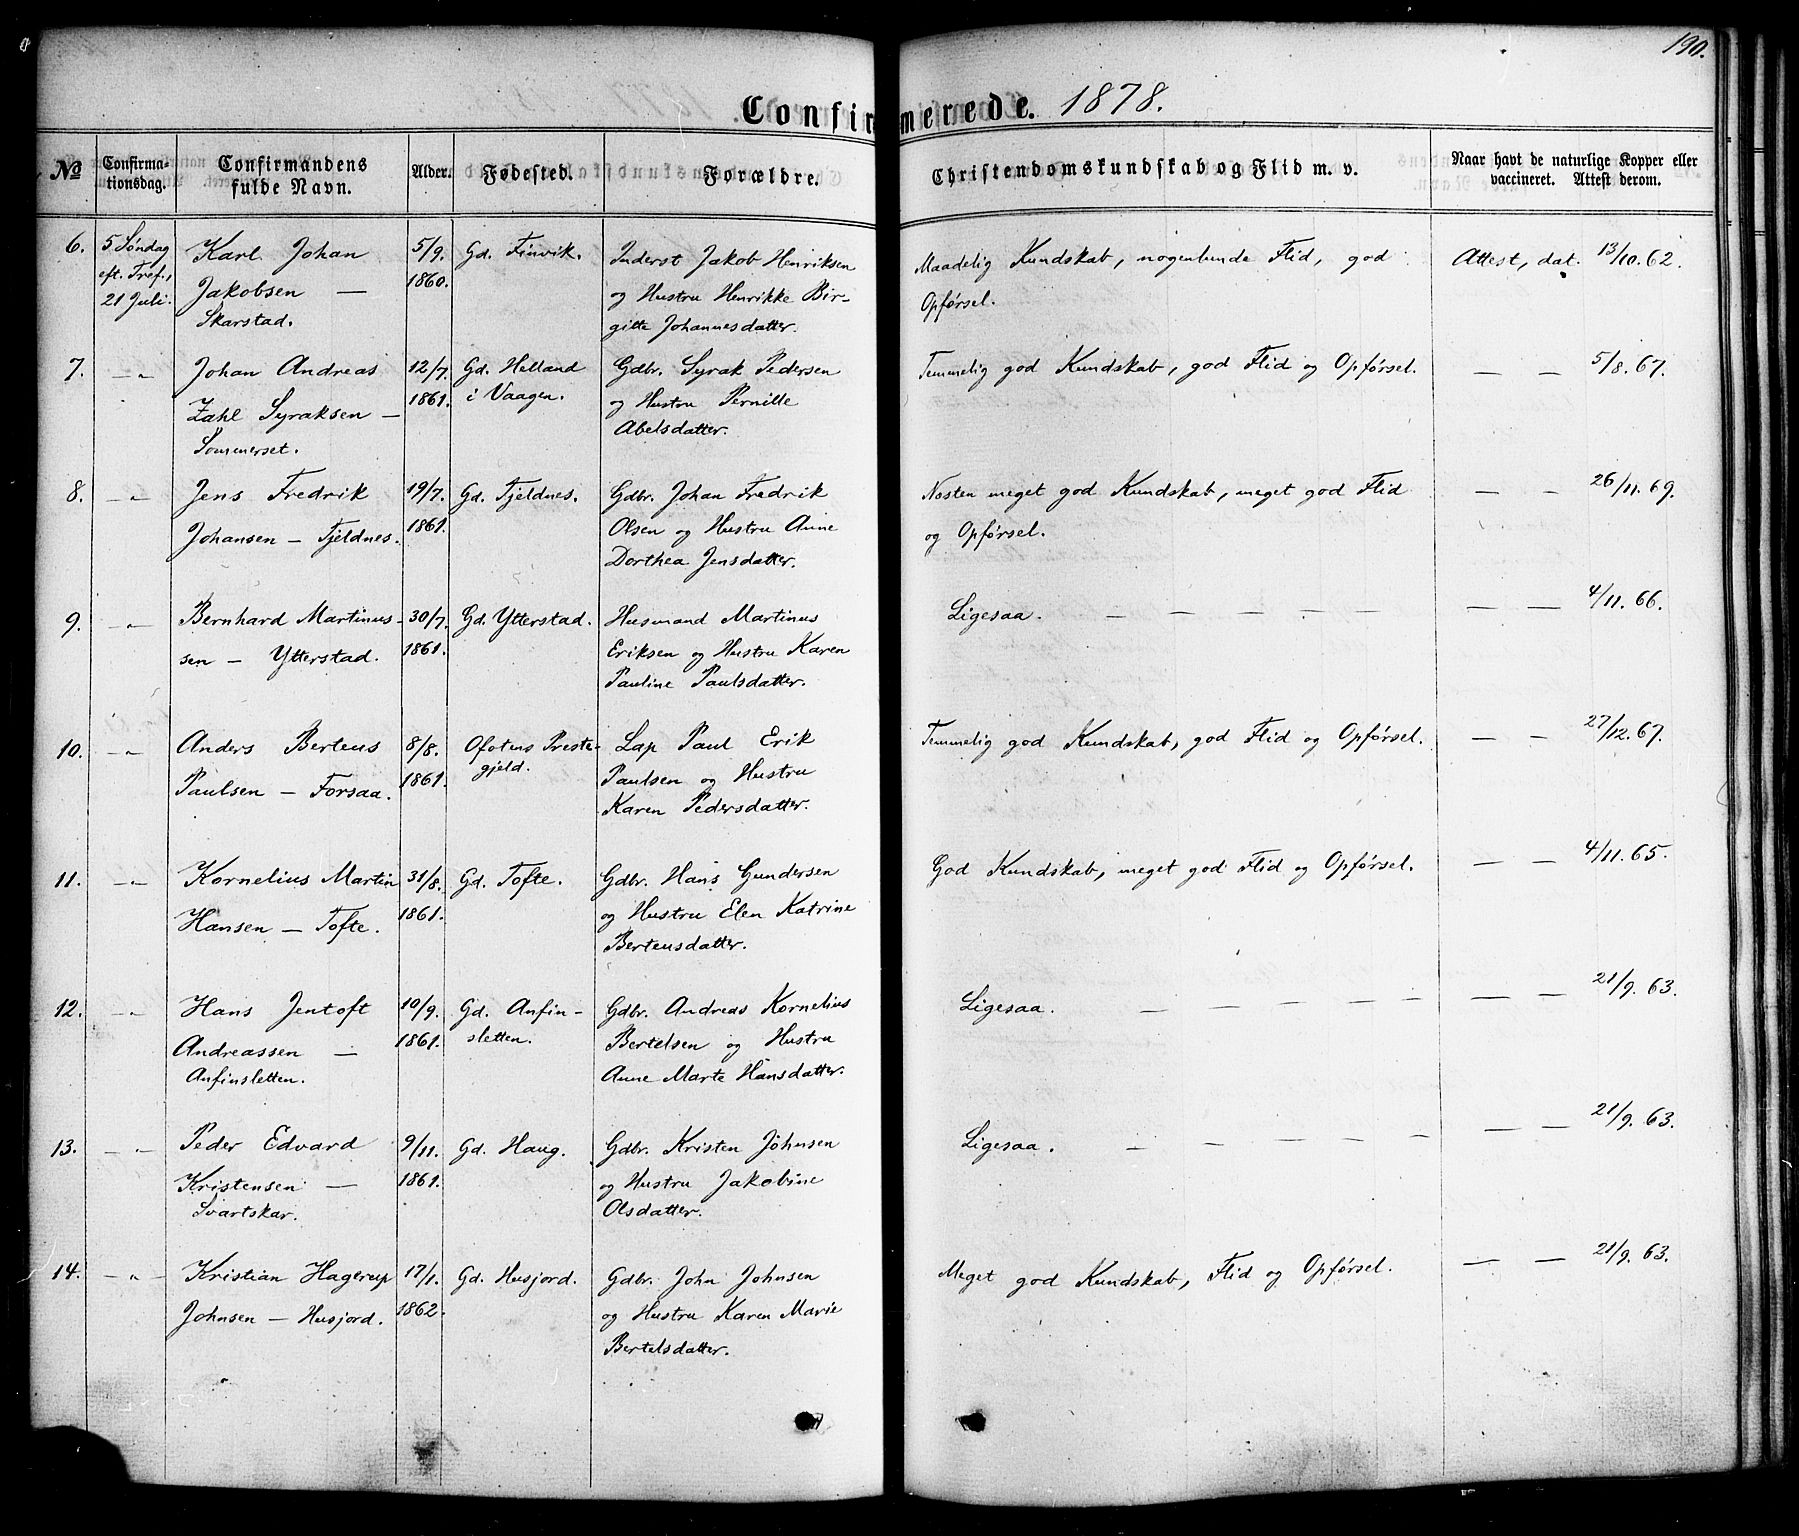 190.
Confirmerede. 1878.
No
Confirma-
tionsdag.
Confirmandens
fulde Navn.
Alder.
Fødested.
Forældre.
Christendomskundskab og Flid m. v.
Naar havt de naturlige Kopper eller
vaccineret. Attest derom.
6. 5 Søndag Karl Johan 5/9. Gd. Finvik. Inderst Jakob Henriksen Maadelig Kundskab, nogenlunde Flid, god Attest, dat. 13/10. 62.
eft. Tref., Jakobsen — 1860. og Hustru Henrikke Bir- Opførsel.
21 Juli. Skarstad. gitte Johannesdatter.
7. — „ Johan Andreas 12/7. Gd. Helland Gdbr. Syrak Pedersen Temmelig god Kundskab, god Flid og Opførsel. — — 5/8. 67.
Zahl Syraksen — 1861. i Vaagen. og Hustru Pernille
Sommerset. Abelsdatter.
8. — „ Jens Fredrik 19/7. Gd. Fjeldnes. Gdbr. Johan Fredrik Nesten meget god Kundskab, meget god Flid — — 26/11. 69.
Johansen — Fjeldnes. 1861. Olsen og Hustru Anne og Opførsel.
Dorthea Jensdatter.
9. — „ Bernhard Martinus- 30/7. Gd. Ytterstad. Husmand Martinus Ligesaa. — — — — — — — 4/11. 66.
sen — Ytterstad. 1861. Eriksen og Hustru Karen
Pauline Paulsdatter.
10. — „ Anders Berteus 8/8. Ofotens Preste- Lap Paul Erik Temmelig god Kundskab, god Flid og Opførsel. — — 27/12. 67.
Paulsen — Forsaa. 1861. gjeld. Paulsen og Hustru
Karen Pedersdatter.
11. — „ Kornelius Martin 31/8. Gd. Tofte. Gdbr. Hans Gundersen God Kundskab, meget god Flid og Opførsel. — — 4/11. 65.
Hansen — Tofte. 1861. og Hustru Elen Katrine
Berteusdatter.
12. — „ Hans Jentoft 10/9. Gd. Anfin- Gdbr. Andreas Kornelius Ligesaa. — — — — — — — 21/9. 63.
Andreassen — 1861. sletten. Bertelsen og Hustru
Anfinsletten. Anne Marte Hansdatter.
13. — „ Peder Edvard 9/11. Gd. Haug. Gdbr. Kristen Johnsen Ligesaa. — — — — — — — 21/9. 63.
Kristensen — 1861. og Hustru Jakobine
Svartskar. Olsdatter.
14. — „ Kristian Hagerup 17/1. Gd. Husjord. Gdbr. John Johnsen Meget god Kundskab, Flid og Opførsel. — — 21/9. 63.
Johnsen — Husjord. 1862. og Hustru Karen Marie
Bertelsdatter.